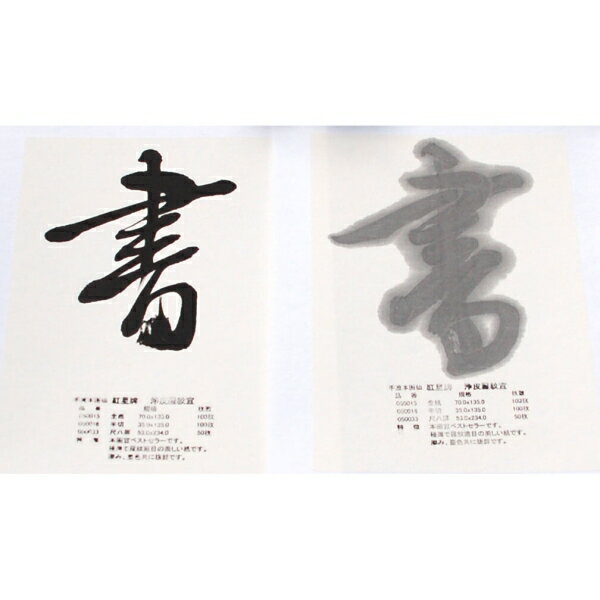 書
手漉本画仙 紅星牌 浄皮羅紋宣
品 番 規格 枚数
050015 全紙 70.0x135.0 100枚
050016 半切 35.0x135.0 100枚
050033 尺八屏 53.0x234.0 50枚
特 徴 本画宣ベストセラーです。
極薄で羅紋簾目の美しい紙です。
滲み、墨色共に抜群です。
書
手漉本画仙 紅星牌 浄皮羅紋宣
品 番 規格 枚数
050015 全紙 70.0x135.0 100枚
050016 半切 35.0x135.0 100枚
050033 尺八屏 53.0x234.0 50枚
特 徴 本画宣ベストセラーです。
極薄で羅紋簾目の美しい紙です。
滲み、墨色共に抜群です。